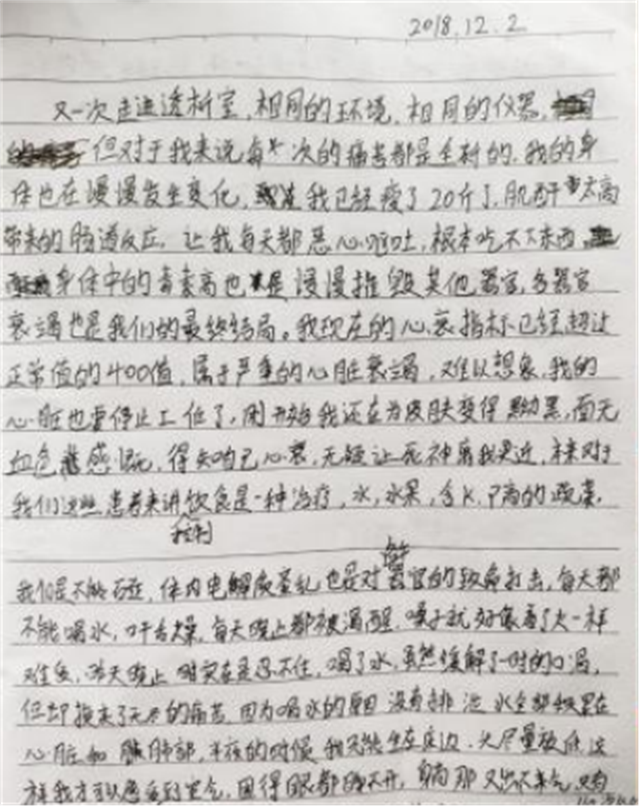 2018.12.2
又一次走进透析室，相同的环境，相同的仪器，
但对于我来说每一次的痛苦都是全新的。我的身
体也在慢慢发生变化，我已经瘦了20斤了，肌酐太高
带来的肠道反应，让我每天都恶心呕吐，根本吃不下东西，
身体中的毒素高也是慢慢摧毁其他器官，多器官
衰竭也是我们的最终结局。我现在的心衰指标已经超过
正常值的400值，属于严重的心脏衰竭，难以想象，我的
心脏也要停止工作了，刚开始我还在为皮肤变得黝黑，面无
血色感，得知自己心衰，无疑让死神离我更近，本来对于
我们这些患者来讲饮食是一种治疗，水，水果，含K、P高的蔬菜，
控制
我们是不能碰，体内电解质紊乱也是对器官的致命打击，每天都
不能喝水，口干舌燥，每天晚上都被渴醒，嗓子就好像着了火一样
难受，昨天晚上时实在是忍不住，喝了水，虽然缓解了一时的口渴，
但却换来了的痛苦，因为喝水的原因没有排泄水全部积累在
心脏和肺部，半夜的时候我只能坐在床边，头尽量放低这
样我才可以感受到空气，困得眼都睁不开，躺那又出不来气，只有